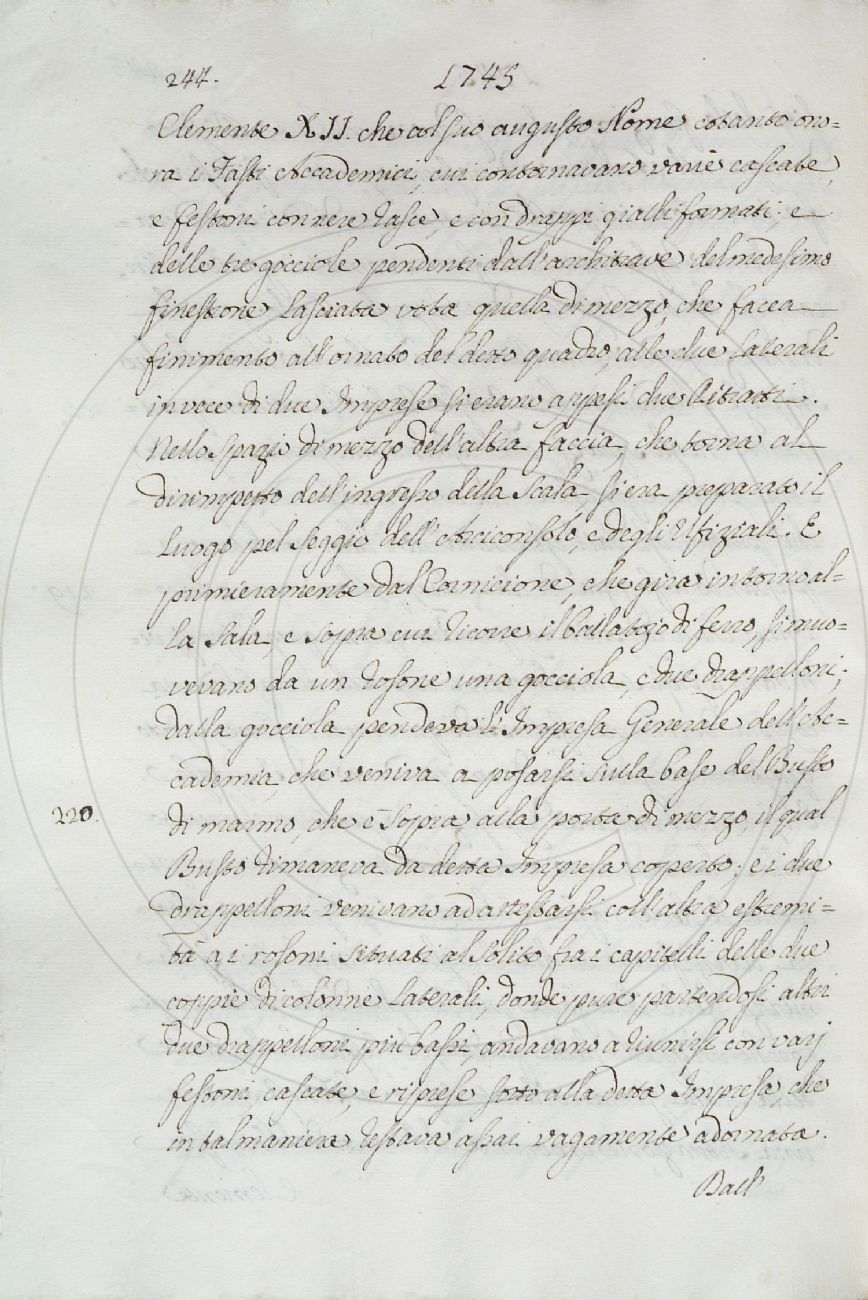 244.
1745
Clemente XII. che col suo augusto Nome cotanto ono=
ra i Fasti Accademici, cui contornavano varie cascate,
e festoni con nere rasce, e con drappi gialli formati; e
delle tre gocciole pendenti dall'architrave del medesimo
finestrone, lasciata vota quella di mezzo, che facea
finimento all'ornato del detto quadro, alle due laterali
in vece di due Imprese si erano appesi due Ritratti.
Nello Spazio di mezzo dell'altra faccia, che torna al
dirimpetto dell'ingresso della Scala, si era preparato il
Luogo pel Seggio dell'Arciconsolo, e degli Ufiziali. E
primieramente dal Cornicione, che gira intorno al=
la Sala, e sopra cui ricorre il ballatojo di ferro, si muo=
vevano da un rosone una gocciola, e due drappelloni;
dalla gocciola pendeva l'Impresa Generale dell'Ac=
cademia, che veniva a posarsi sulla base del Busto
220.
di marmo, che è sopra alla porta di mezzo, il qual
Busto rimaneva da detta Impresa coperto; e i due
drappelloni venivano ad attestarsi coll'altra estremi=
tà a i rosoni situati al solito fra i capitelli delle due
coppie di colonne laterali, donde pure partendosi altri
due drappelloni più bassi, andavano a riunirsi con varj
festoni cascate, e riprese sotto alla detta Impresa, che
in tal maniera restava assai vagamente adornata.
Dall'